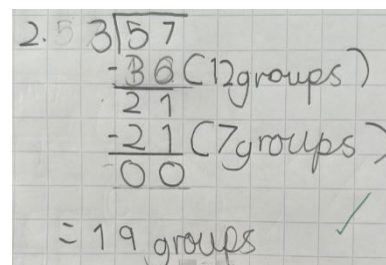 2. 5 3)57
-36 (12groups)
21
-21 (7groups)
00
= 19 groups